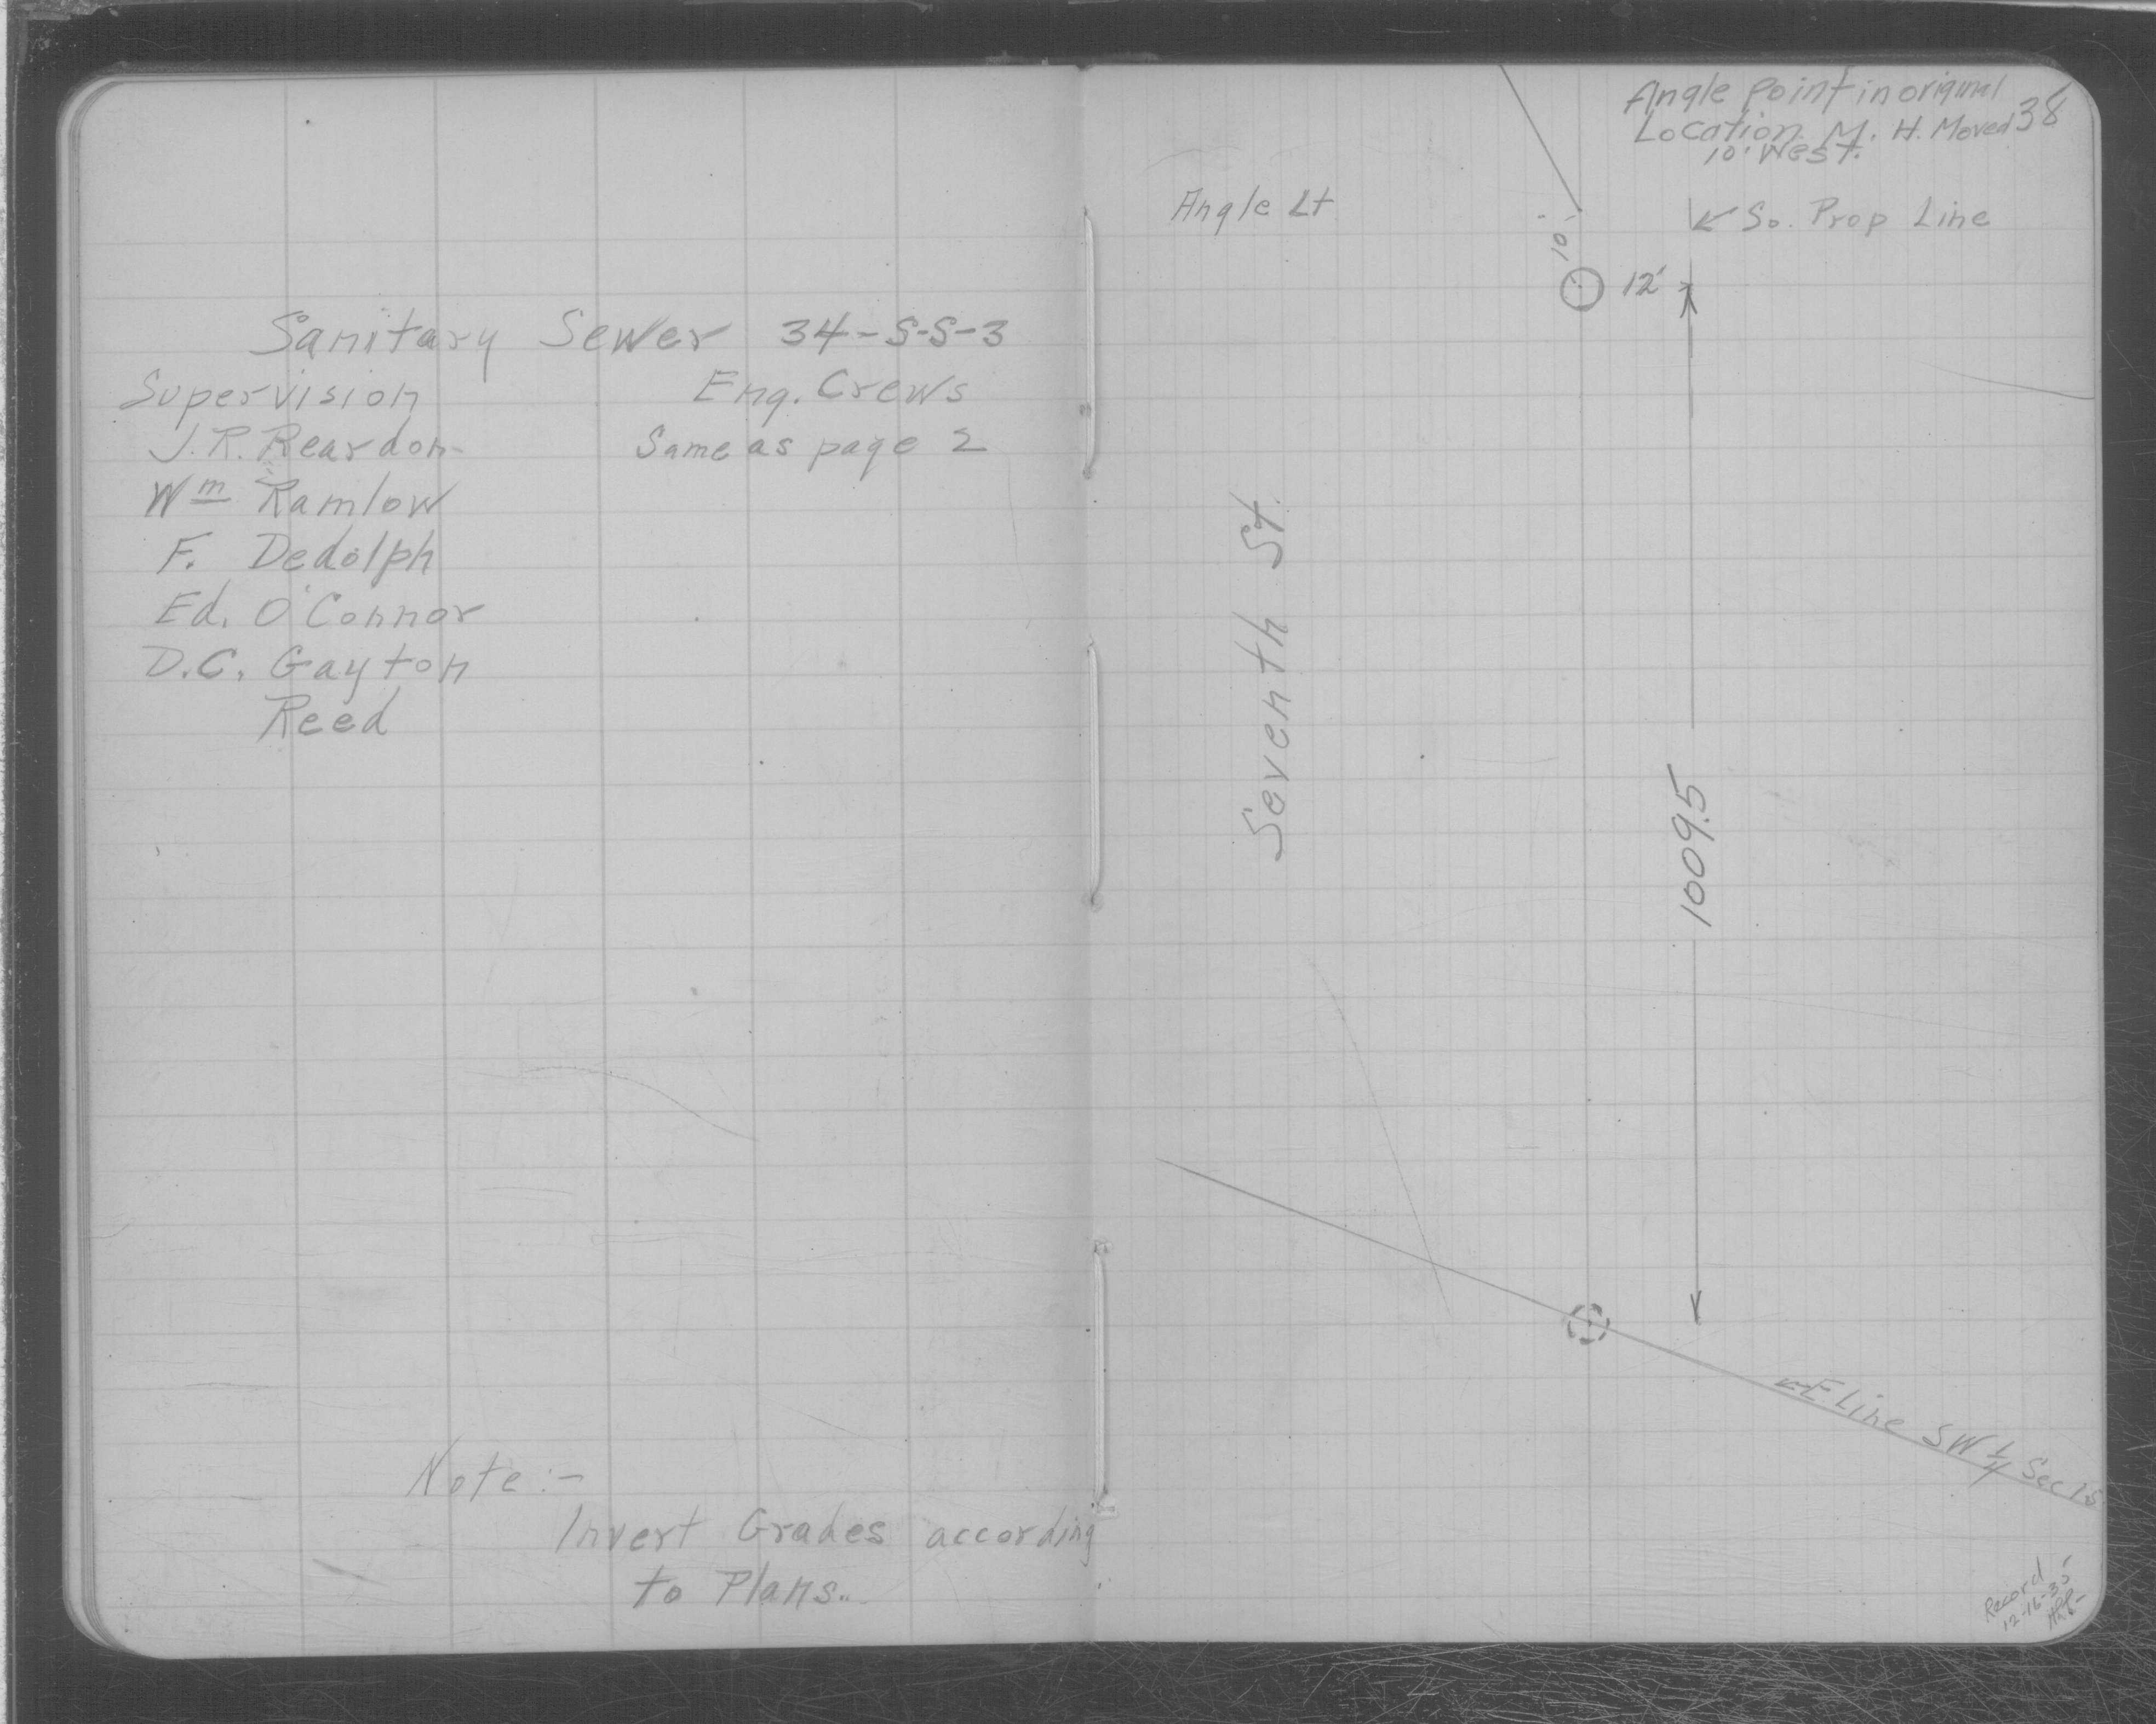 Sanitary Sewer 34-S-S-3
Supervision Eng. Crews
J. R. Reardon Same as page 2
Wm Ramlow
F. Dedolph
Ed. O'Connor
D.C. Gayton
Reed
Note:-
Invert Grades according
to Plans..
38
Angle Point in original
Location. M. H. Moved
10' West.
Angle Lt
← So. Prop Line
10'
12'
Seventh St.
1009.5
← E Line SW 1/4 Sec
Record
12-16-35